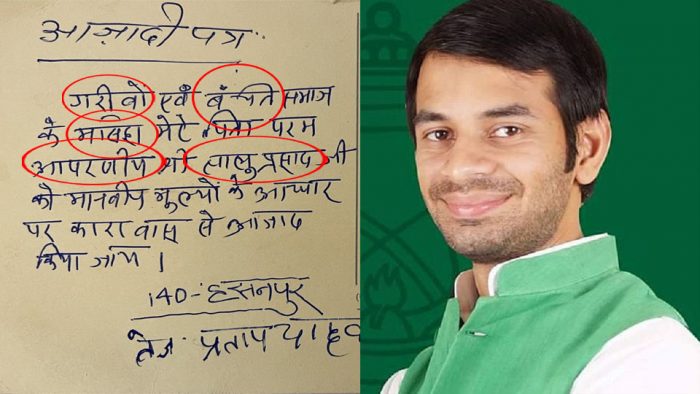 आज़ादी पत्र
गरीवो एवं बंचित समाज
के मसिहा मेरे पिता परम
आपरणीय श्री लालु प्रसाद जी
को मानवीय मुल्यों के आधार
पर कारावास से आजाद
किया जाय।
140-हसनपुर
तेज प्रताप यादव